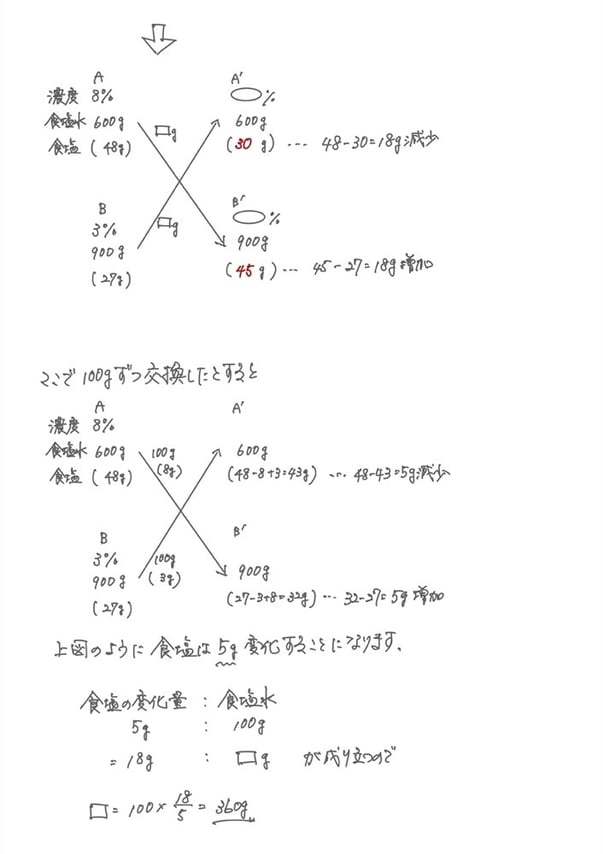 A A'
濃度 8% %
食塩水 600g □g 600g
食塩 (48g) (30g) … 48-30=18g減少
B □g B'
3% %
900g 900g
(27g) (45g) … 45-27=18g増加
ここで100gずつ交換したとすると
A A'
濃度 8%
食塩水 600g 100g 600g
食塩 (48g) (8g) (48-8+3=43g) … 48-43=5g減少
B B'
3% 100g
900g (3g) 900g
(27g) (27-3+8=32g) … 32-27=5g増加
上図のように食塩は5g変化することになります、
食塩の変化量 : 食塩水
5g : 100g
= 18g : □g が成り立つので
□=100×18/5=360g